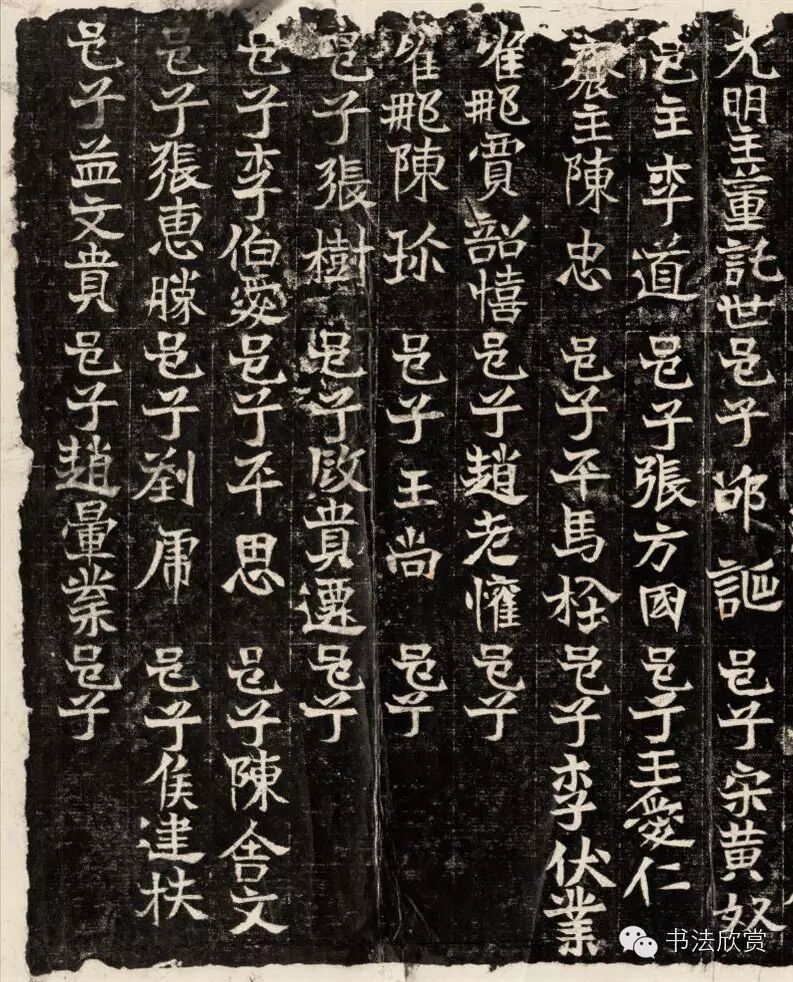 光明主董託世邑子邰謳邑子宋黄奴
邑主李道邑子張方國邑子王愛仁
齋主陳忠邑子平馬栓邑子李伏業
唯那賈韶憘邑子趙老懽邑子
唯那陳珎邑子王尚邑子
邑子張樹邑子貴遷邑子
邑子李伯愛邑子平思邑子陳舍文
邑子張惠勝邑子劉席邑子侯建扶
邑子益文貴邑子趙暈業邑子
书法欣赏